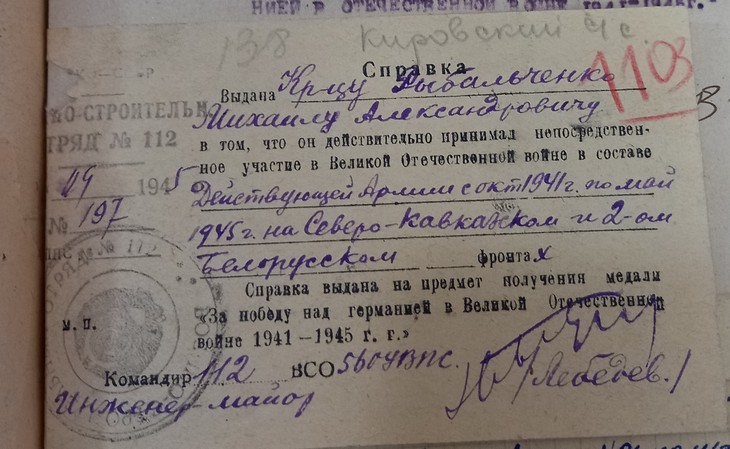 НИЕЙ В ОТЕЧЕСТВЕННОЙ ВОЙНЕ
138 Кировский с/с
Справка
1103
Выдана Кр-цу Рыбальченко
Михаилу Александровичу
в том, что он действительно принимал непосредствен-
ное участие в Великой Отечественной войне в составе
Действующей Армии с окт 1941 г. по май
1945 г. на Северо-Кавказском и 2-ом
Белорусском фронтах
Справка выдана на предмет получения медали
«За победу над германией в Великой Отечественной
войне 1941—1945 г. г.»
О-СТРОИТЕЛЬН
ТРЯД № 112
194 5
№ 197
М. П.
Командир 112 ВСО 560УВПС.
Инженер-майор
/Лебедев./